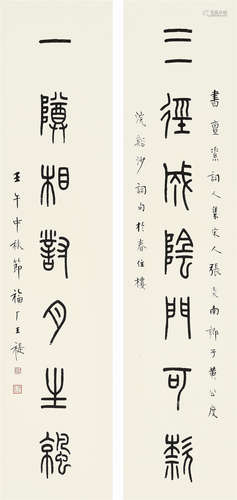 三徑成陰門可款
書詞人集宋人張炎南鄉子黃公度
浣谿沙詞句於春住樓
一隮相對月生
壬午中秋節福厂王禔